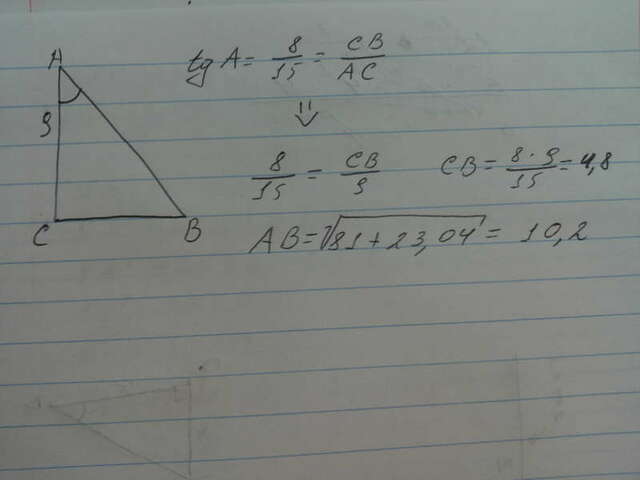 A
9
C
B
tg A = 8/15 = CB/AC
⇓
8/15 = CB/9
CB = 8·9/15 = 4,8
AB = √81+23,04 = 10,2